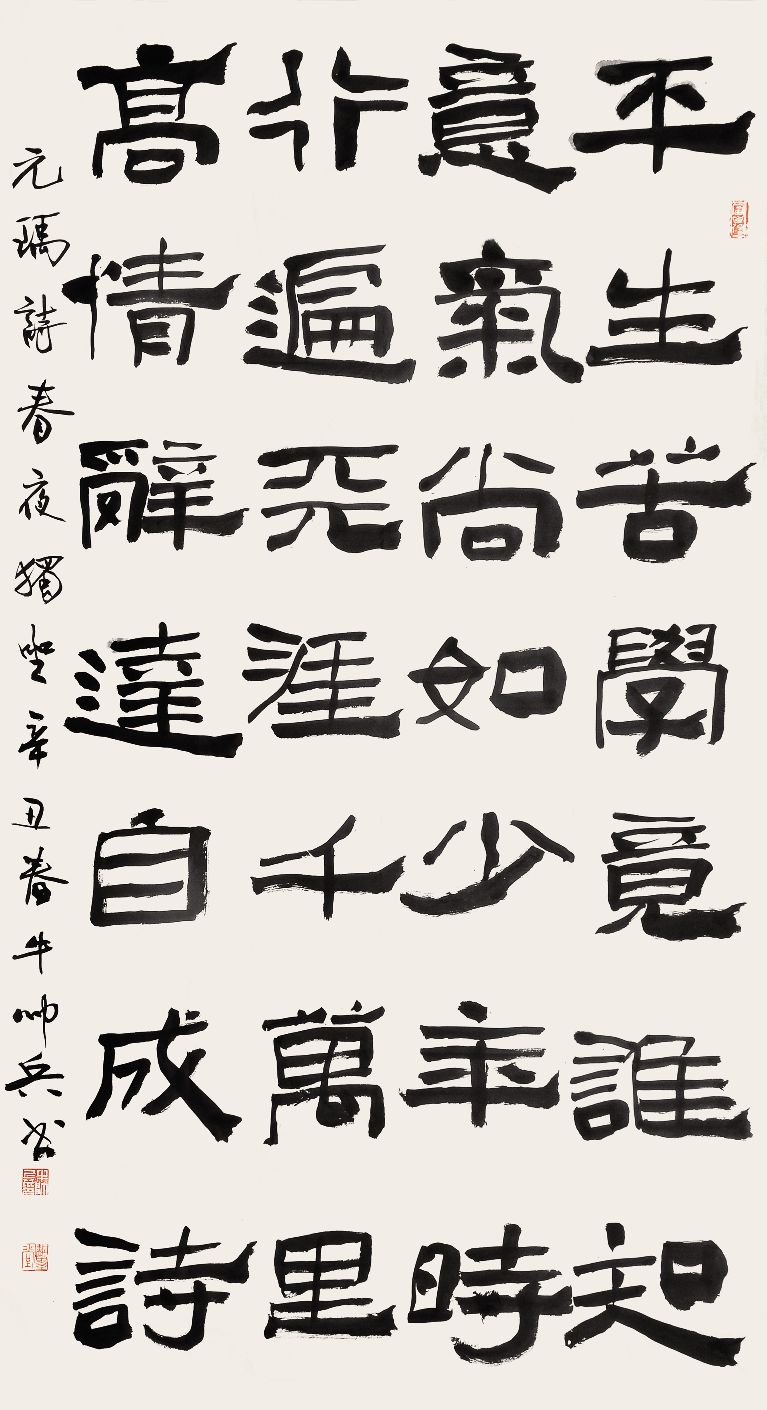 平生苦學竟誰知
意氣尚如少年時
行遍天涯千萬里
高情辭達自成詩
元瑀詩春夜獨坐辛丑春牛帥兵書